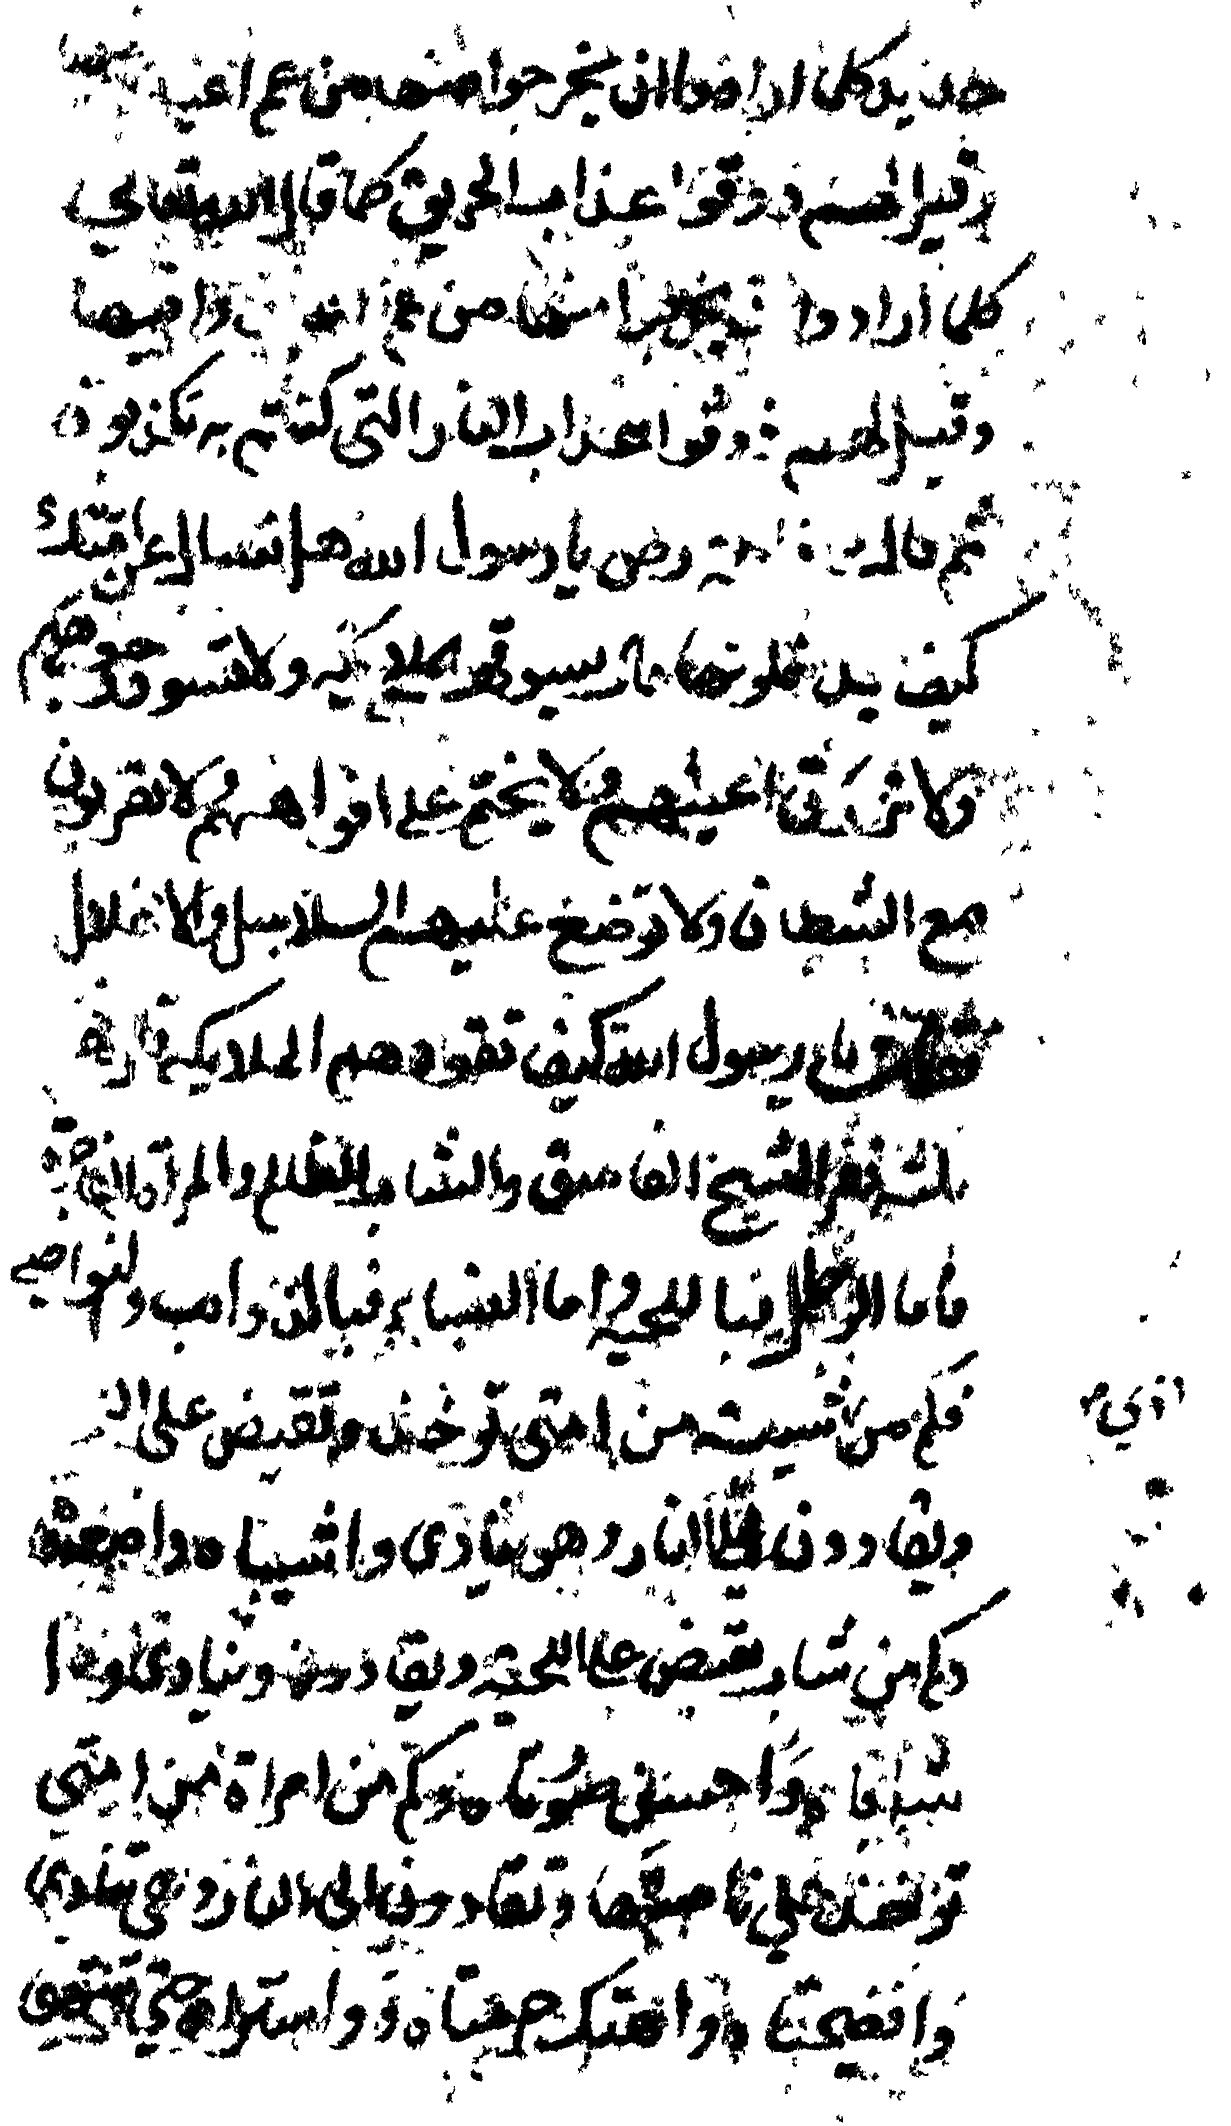 حديد كل ارادوا ان يخرجوا منها من غم اعيدوا فيها
وقيل لهم ذوقوا عذاب الحريق كما قال الله تعالي
كلما ارادوا ان يخرجوا منها من غم اعيدوا فيها
وقيل لهم ذوقوا عذاب النار التي كنتم به تكذبون
ثم قالت فاطمة رض يا رسول الله هل تسال عن امتك
كيف يدخلونها قال يسوقهم الملايكة ولا تسود وجوههم
ولا تزرق اعينهم ولا يختم علي افواههم ولا يقربون
مع الشيطان ولا توضع عليهم السلاسل والاغلال
فقالت يا رسول الله كيف تقودهم الملايكة قال
بثلثة نفر الشيخ الفاسق والشاب الظالم والمراة
فاما الرجال فبا للحية واما النساء فبالذوايب والنواصي
فكم من شيبة من امتي توخذ وتقبض علي
ويقادون الي النار وهو ينادي واشيباه واضيعتاه
وكم من شاب يقبض علي اللحية ويقادون وينادي وا
شباباه واحسن صوتاه وكم من امراة من امتي
توخذ علي ناصيتها وتقادون الي النار وهي تنادي
وافضيحتاه واهتك حرمتاه واستراه حتي
اذي